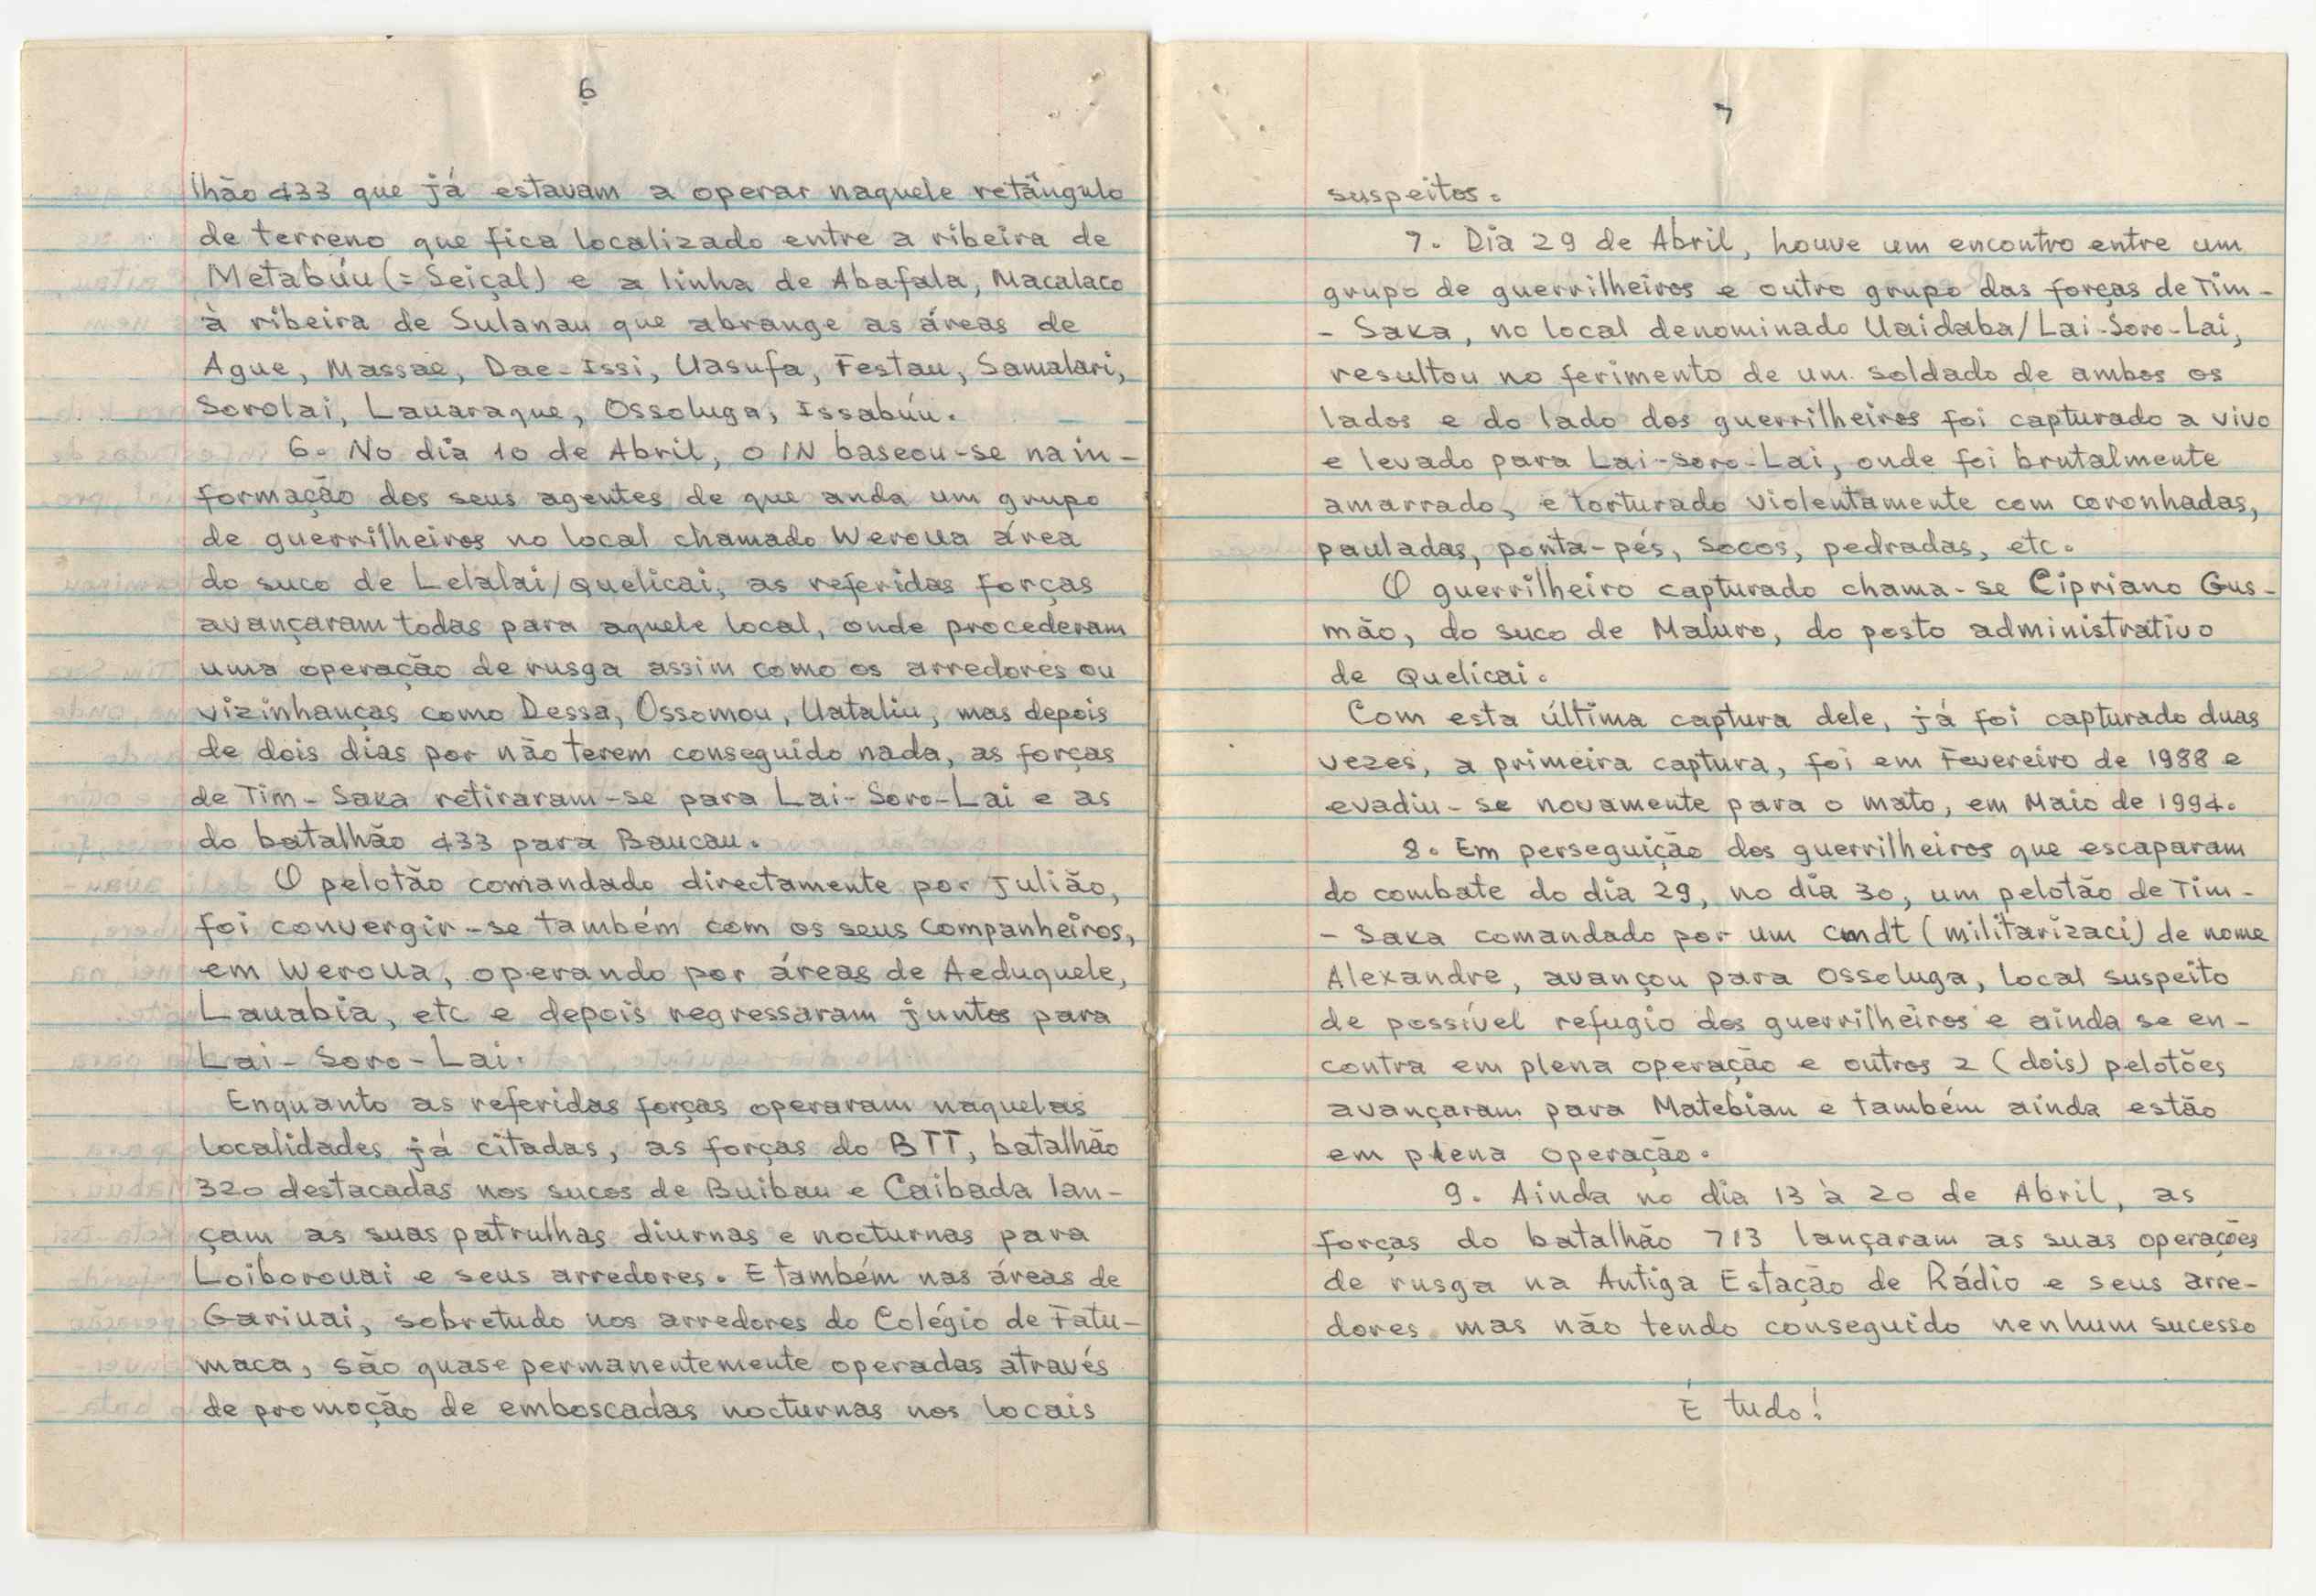 6
lhão 433 que já estavam a operar naquele retângulo
de terreno que fica localizado entre a ribeira de
Metabúu (= Seiçal) e a linha de Abafala, Macalaco
à ribeira de Sulanau que abrange as áreas de
Ague, Massae, Dae-Issi, Uasufa, Festau, Samalari,
Sorolai, Lauaraque, Ossoluga, Issabúu.
6. No dia 10 de Abril, o IN baseou-se na in-
formação dos seus agentes de que anda um grupo
de guerrilheiros no local chamado Weroua área
do suco de Lelalai/Quelicai, as referidas forças
avançaram todas para aquele local, onde procederam
uma operação de rusga assim como os arredores ou
vizinhanças como Dessa, Ossomou, Uataliu, mas depois
de dois dias por não terem conseguido nada, as forças
de Tim-Saka retiraram-se para Lai-Soro-Lai e as
do batalhão 433 para Baucau.
O pelotão comandado directamente por Julião,
foi convergir-se também com os seus companheiros,
em Weroua, operando por áreas de Aeduquele,
Lauabia, etc e depois regressaram juntos para
Lai-Soro-Lai.
Enquanto as referidas forças operaram naquelas
localidades já citadas, as forças do BTT, batalhão
320 destacadas nos sucos de Buibau e Caibada lan-
çam as suas patrulhas diurnas e nocturnas para
Loiborouai e seus arredores. E também nas áreas de
Gariuai, sobretudo nos arredores do Colégio de Fatu-
maca, são quase permanentemente operadas através
de promoção de emboscadas nocturnas nos locais
7
suspeitos.
7. Dia 29 de Abril, houve um encontro entre um
grupo de guerrilheiros e outro grupo das forças de Tim-
- Saka, no local denominado Uaidaba/Lai-Soro-Lai,
resultou no ferimento de um soldado de ambos os
lados e do lado dos guerrilheiros foi capturado a vivo
e levado para Lai-Soro-Lai, onde foi brutalmente
amarrado, e torturado violentamente com coronhadas,
pauladas, ponta-pés, socos, pedradas, etc.
O guerrilheiro capturado chama-se Cipriano Gus-
mão, do suco de Maluro, do posto administrativo
de Quelicai.
Com esta última captura dele, já foi capturado duas
vezes, a primeira captura, foi em Fevereiro de 1988 e
evadiu-se novamente para o mato, em Maio de 1994.
8. Em perseguição dos guerrilheiros que escaparam
do combate do dia 29, no dia 30, um pelotão de Tim-
- Saka comandado por um cmdt (militarizaci) de nome
Alexandre, avançou para Ossoluga, local suspeito
de possível refugio dos guerrilheiros e ainda se en-
contra em plena operação e outros 2 (dois) pelotões
avançaram para Matebian e também ainda estão
em plena operação.
9. Ainda no dia 13 à 20 de Abril, as
forças do batalhão 713 lançaram as suas operações
de rusga na Antiga Estação de Rádio e seus arre-
dores mas não tendo conseguido nenhum sucesso
É tudo!